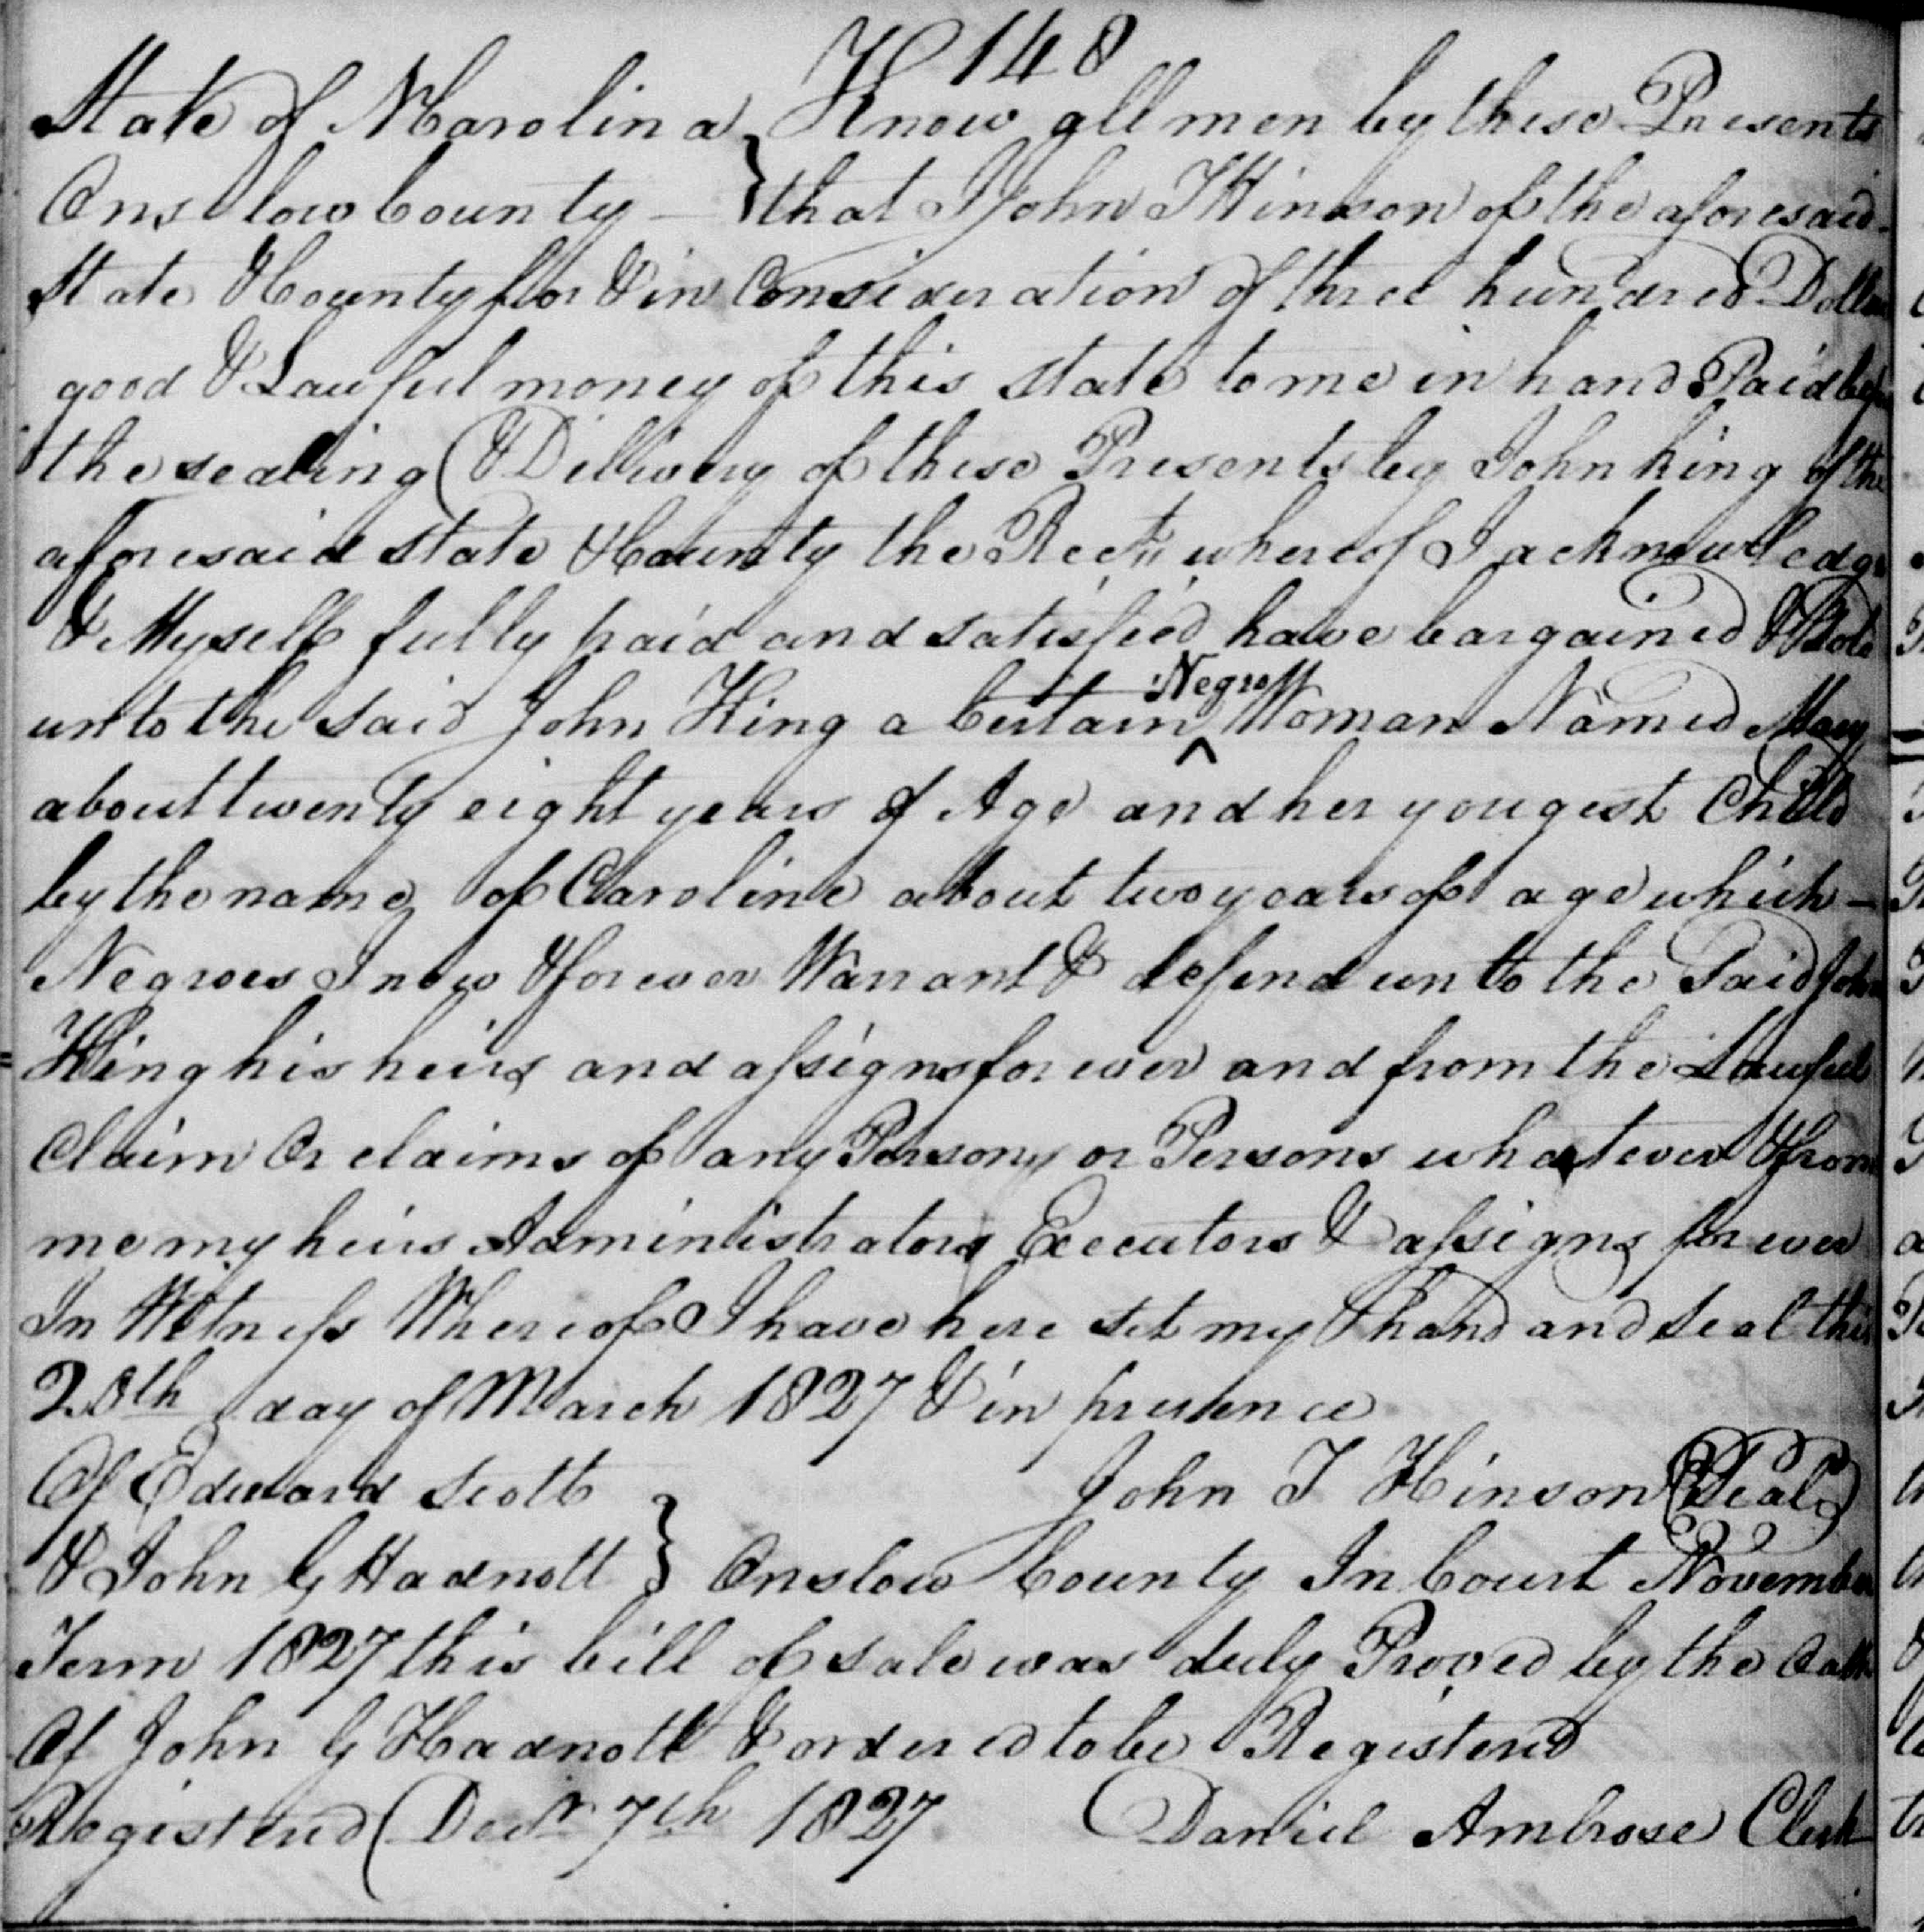 148
State of N Carolina } Know all men by these Presents
Onslow County — } that I John T Hinson of the aforesaid
State & County for & in Consideration of three hundred Dollars
good & Lawful money of this state to me in hand Paid before
the sealing & Dilivery of these Presents by John King of the
aforesaid State & County the Rect whereof I acknowledge
& Myself fully paid and satisfied have bargained & Sold
unto the said John King a Certain ^Negro Woman Named Mary
about twenty eight years of Age and her yougest Child
by the name of Caroline about two years of age which —
Negroes I now & forever Warrant & defend unto the Said John
King his heirs and assigns forever and from the Lawful
Claim Or claims of any Person or Persons whatever & from
me my heirs Administrators Executors & assigns forever
In Witness Whereof I have here set my hand and Seal this
20th day of March 1827 & in presence
Of Edward Scott John T Hinson (Seal)
& John G Hadnott } Onslow County In Court November
Term 1827 this bill of sale was duly Proved by the Oath
Of John G Hadnott & ordered to be Registered
Registered Decr 7th 1827 Daniel Ambrose Clerk